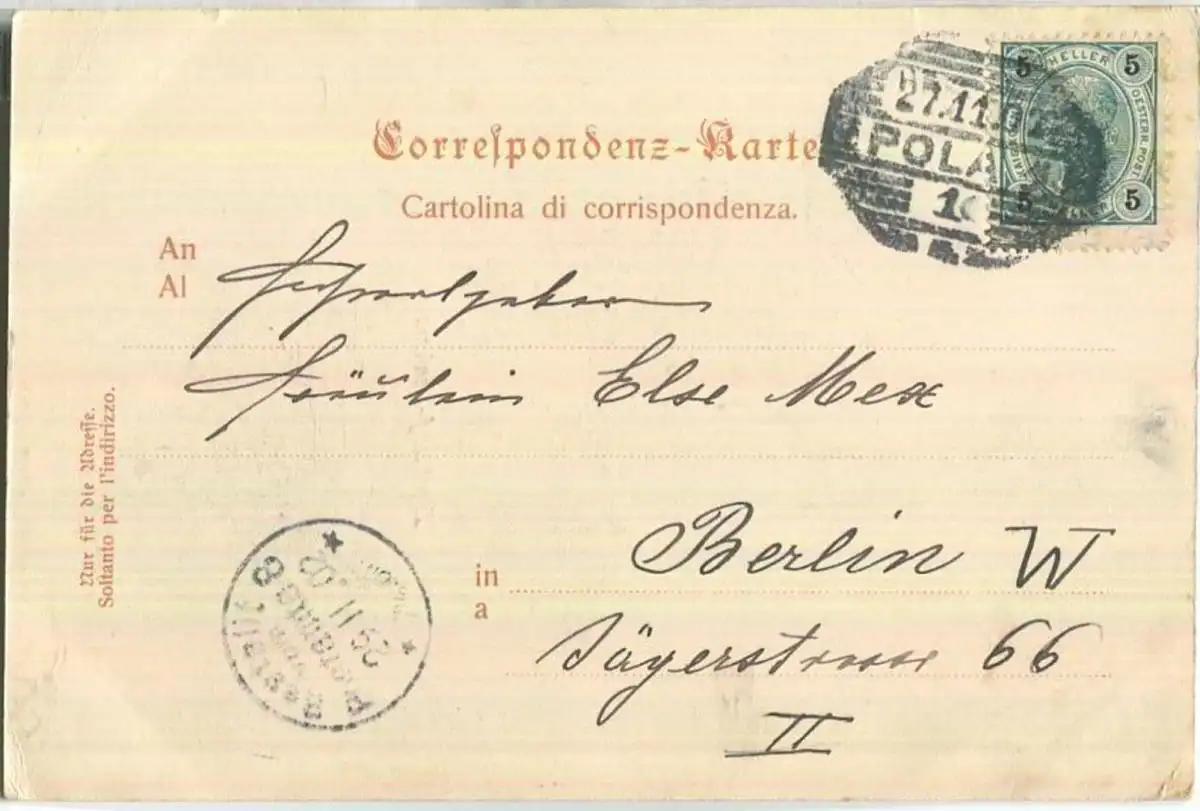 Correspondenz-Karte
Cartolina di corrispondenza.
5 HELLER 5
KAIS. KÖN. OESTERR. POST
5 HELLER 5
27.11.
POLA
10
An
Al
Fräulein Else Mex
in
a
Berlin W
Jägerstrasse 66
II
Nur für die Adresse.
Soltanto per l'indirizzo.
Bestellt
vom
Postamte 8
29 11 02